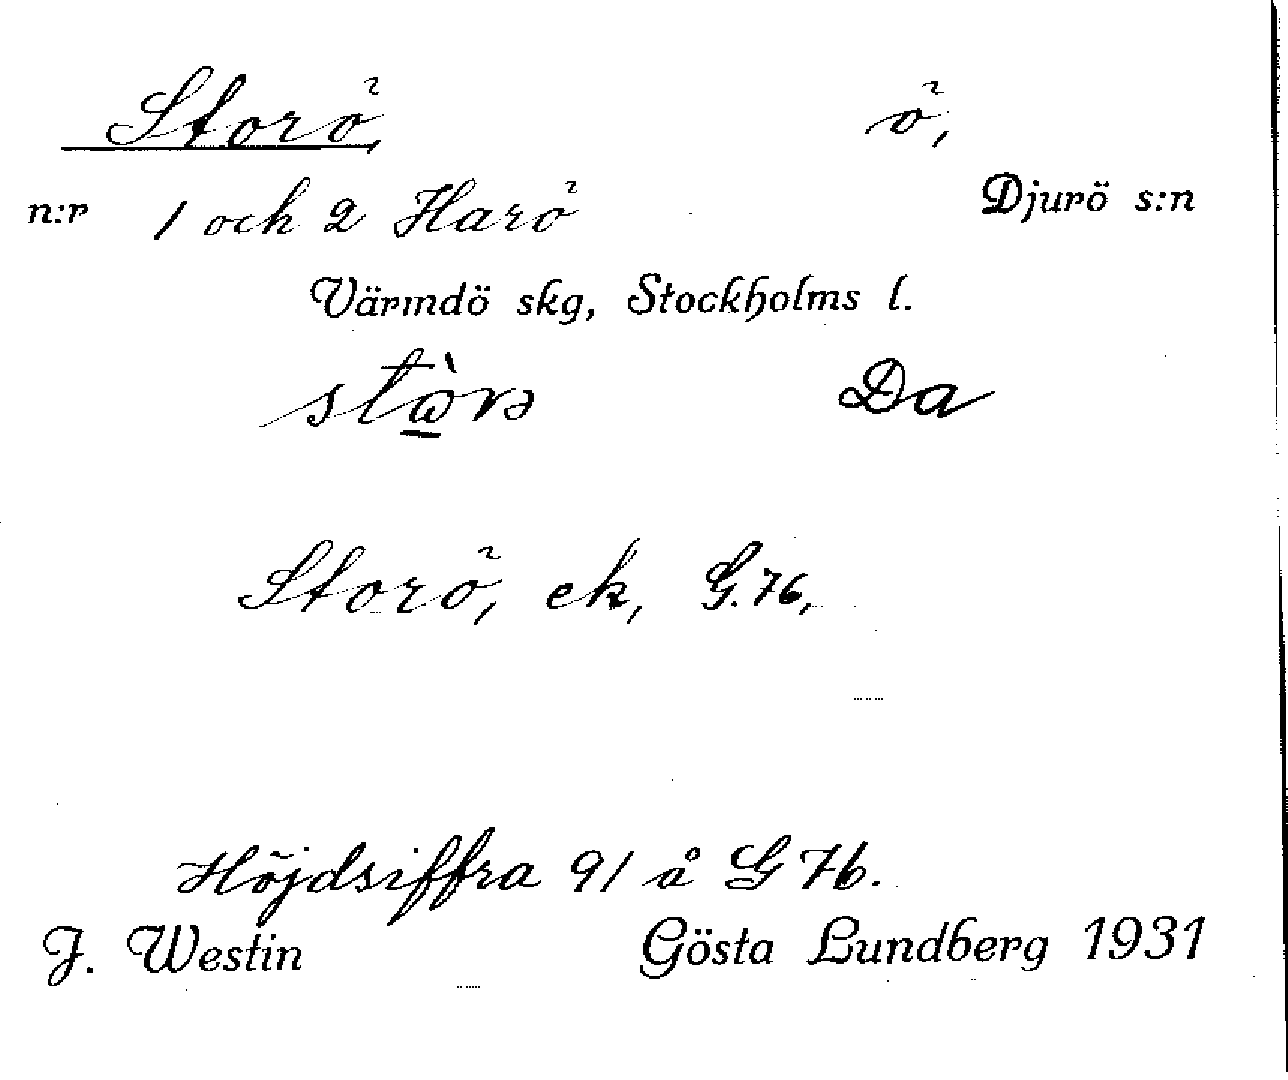 Storö, ö,
n:r 1 och 2 Harö Djurö s:n
Värmdö skg, Stockholms l.
Da
Storö, ek, G. 76,
Höjdsiffra 91 å G 76.
J. Westin Gösta Lundberg 1931